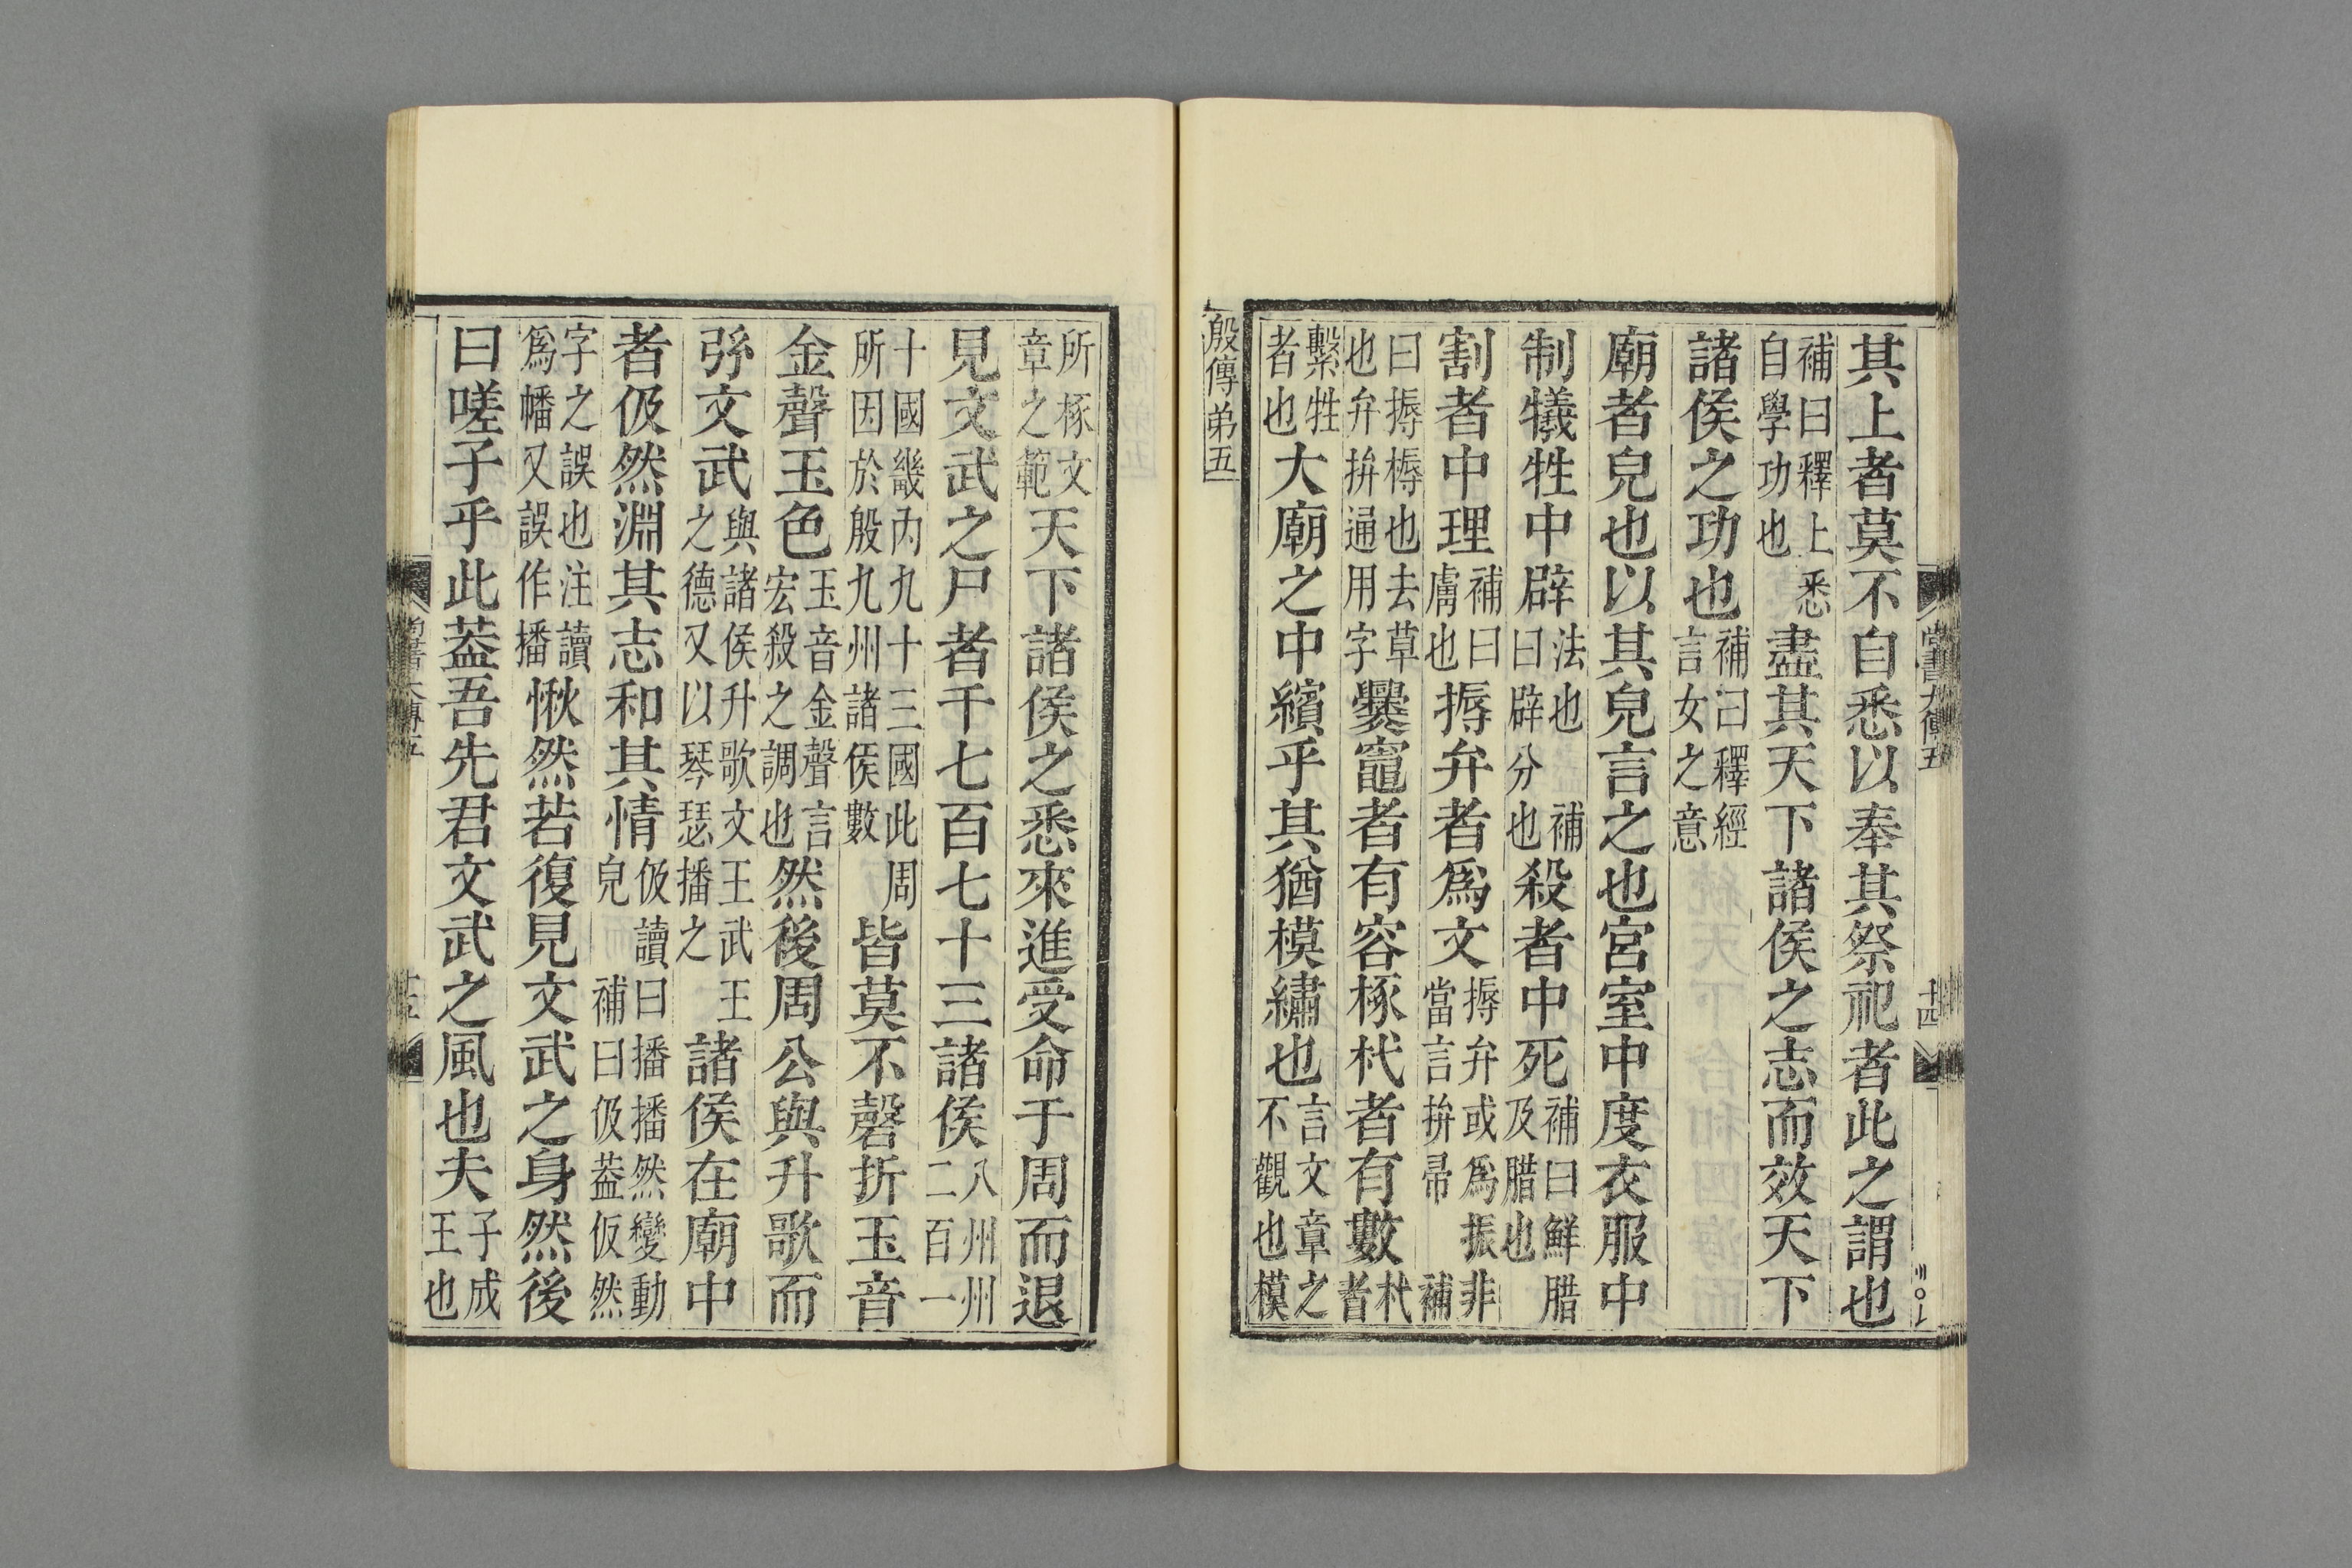 尚書大傳五 十四
其上者莫不自悉以奉其祭祀者此之謂也
補曰釋上悉自學功也盡其天下諸侯之志而效天下
諸侯之功也補曰釋經言女之意
廟者皃也以其皃言之也宮室中度衣服中
制犧牲中辟法也補曰辟分也殺者中死補曰鮮腊及腊也
割者中理補曰膚也搙弁者爲文搙弁或爲振非當言拚帚補
曰搙槈也去草也弁拚通用字爨竈者有容椓杙者有數杙者
繫牲者也大廟之中繽乎其猶模繡也言文章之不觀也模
殷傳弟五
所椓文章之範天下諸侯之悉來進受命于周而退
見文武之尸者千七百七十三諸侯八州州二百一
十國畿內九十三國此周所因於殷九州諸侯數皆莫不磬折玉音
金聲玉色玉音金聲言宏殺之調也然後周公與升歌而
弦文武與諸侯升歌文王武王之德又以琴瑟播之諸侯在廟中
者伋然淵其志和其情伋讀曰播播然變動皃補曰伋葢仮然
字之誤也注讀爲幡又誤作播愀然若復見文武之身然後
曰嗟子乎此葢吾先君文武之風也夫子成王也